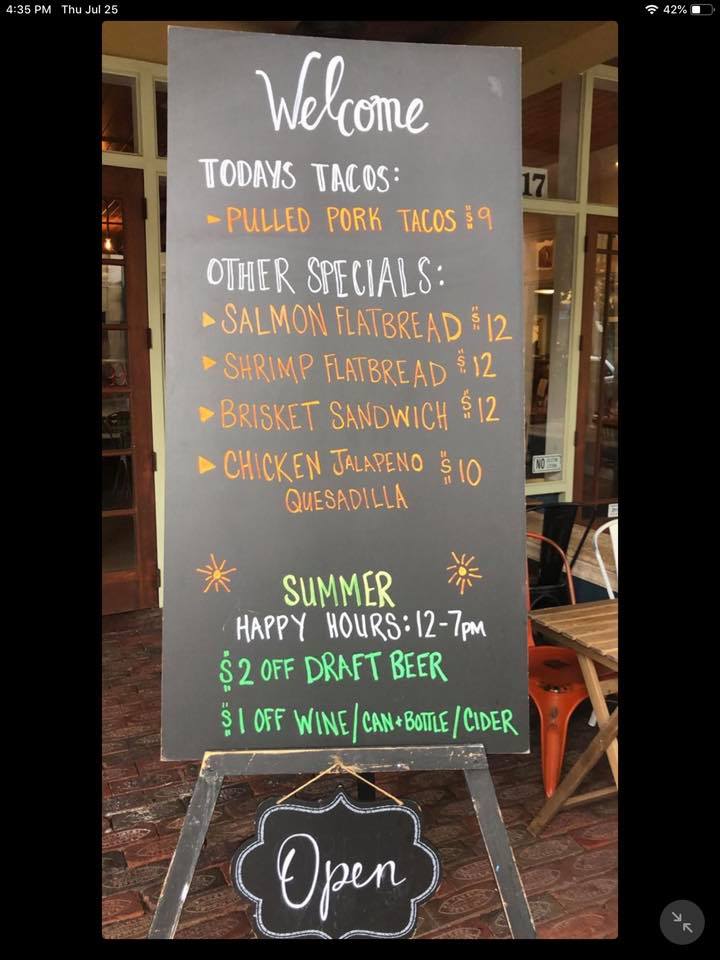 4:35 PM Thu Jul 25
42%
Welcome
TODAYS TACOS:
PULLED PORK TACOS $9
17
OTHER SPECIALS:
SALMON FLATBREAD $12
SHRIMP FLATBREAD $12
BRISKET SANDWICH $12
CHICKEN JALAPENO $10
QUESADILLA
NO
SUMMER
HAPPY HOURS: 12-7PM
$2 OFF DRAFT BEER
$1 OFF WINE/CAN+BOTTLE/CIDER
Open